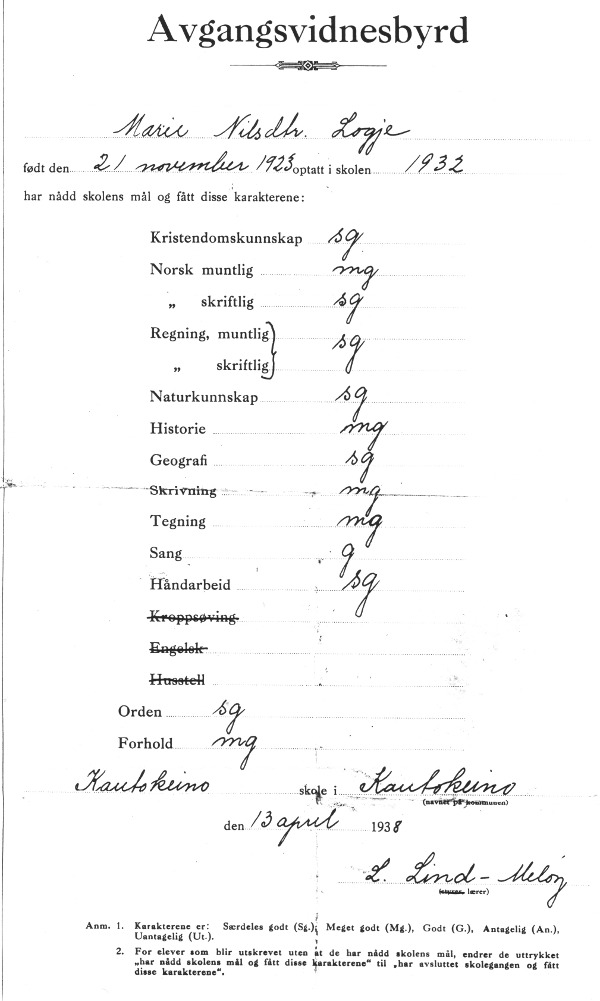 Avgangsvidnesbyrd
Marie Nilsdtr. Logje
født den 21 november 1923 optatt i skolen 1932
har nådd skolens mål og fått disse karakterene:
Kristendomskunnskap sg
Norsk muntlig mg
„ skriftlig sg
Regning, muntlig
„ skriftlig } sg
Naturkunnskap sg
Historie mg
Geografi sg
Skrivning mg
Tegning mg
Sang g
Håndarbeid sg
Kroppsøving
Engelsk
Husstell
Orden sg
Forhold mg
Kautokeino skole i Kautokeino
(navnet på kommunen)
den 13 april 1938
L. Lind-Meløy
(styrer, lærer)
Anm. 1. Karakterene er: Særdeles godt (Sg.), Meget godt (Mg.), Godt (G.), Antagelig (An.),
Uantagelig (Ut.).
2. For elever som blir utskrevet uten at de har nådd skolens mål, endrer de uttrykket
„har nådd skolens mål og fått disse karakterene" til „har avsluttet skolegangen og fått
disse karakterene".